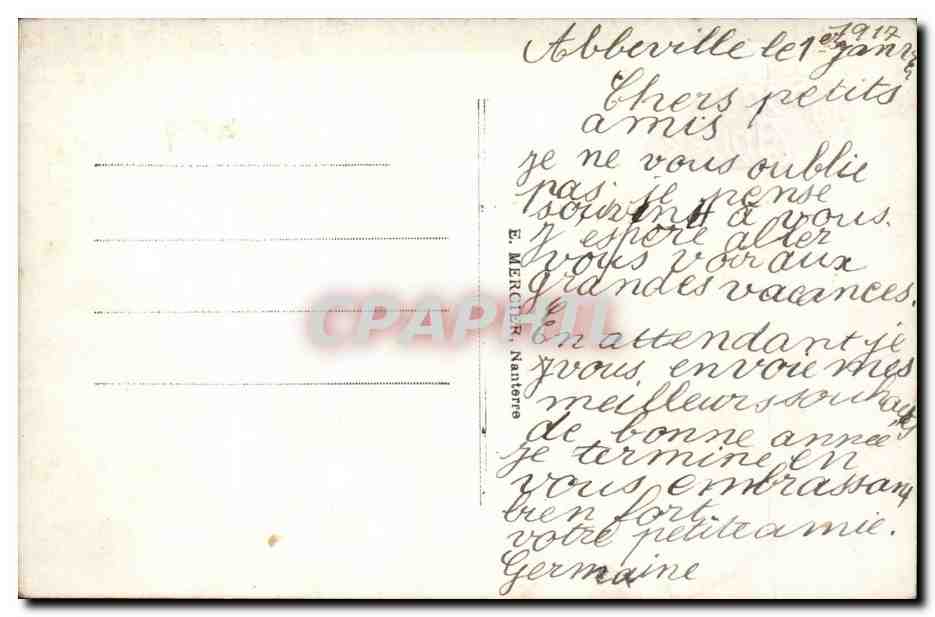 1917
Abbeville le 1er Janv
Chers petits
amis
je ne vous oublie
pas. je pense
souvent à vous.
J espère aller
vous voir aux
grandes vacances.
En attendant je
vous envoie mes
meilleurs souhaits
de bonne année
je termine en
vous embrassant
bien fort
votre petite amie.
Germaine
E. MERCIER, Nanterre
CPAPHIL